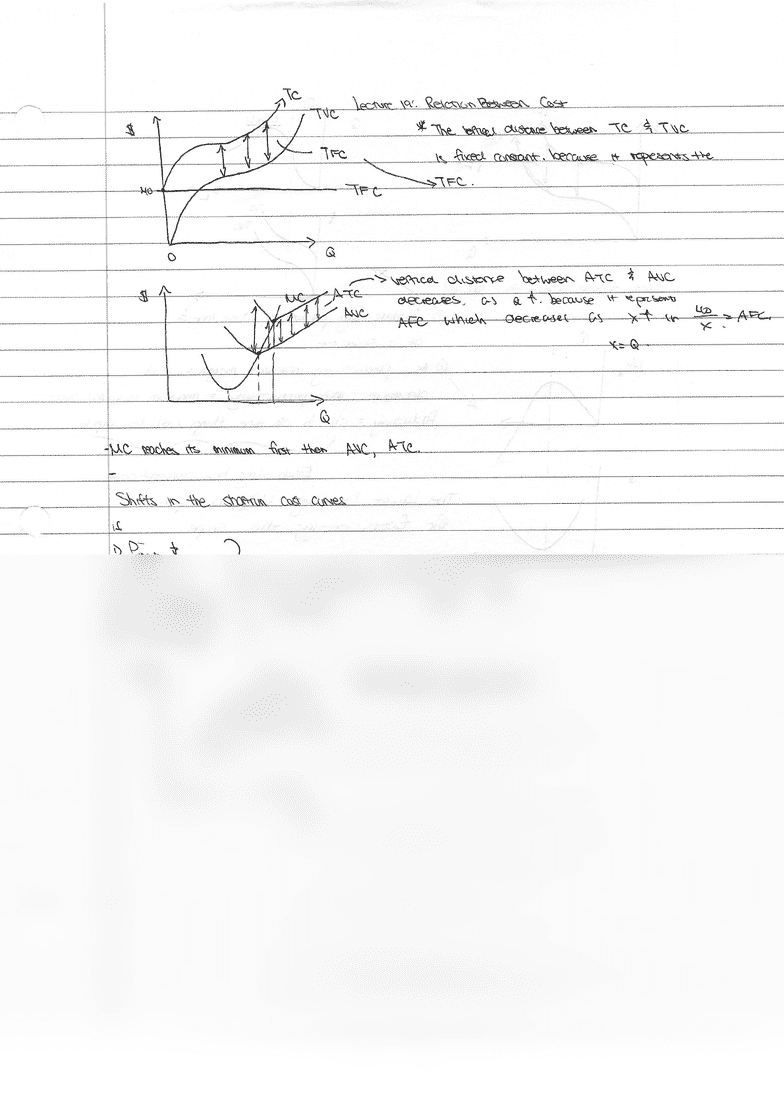 Lecture 19: Relation Between Cost
TC
TVC
$
* The vertical distance between TC & TVC
is fixed constant. because it represents the
TFC
TFC.
40
TFC
0
Q
$
MC
ATC
AVC
vertical distance between ATC & AVC
decreases. as Q ↑. because it represents
AFC which decreases as x↑ in 40/x = AFC.
x = Q.
Q
-MC reaches its minimum first then AVC, ATC.
-
Shifts in the shortrun cost curves